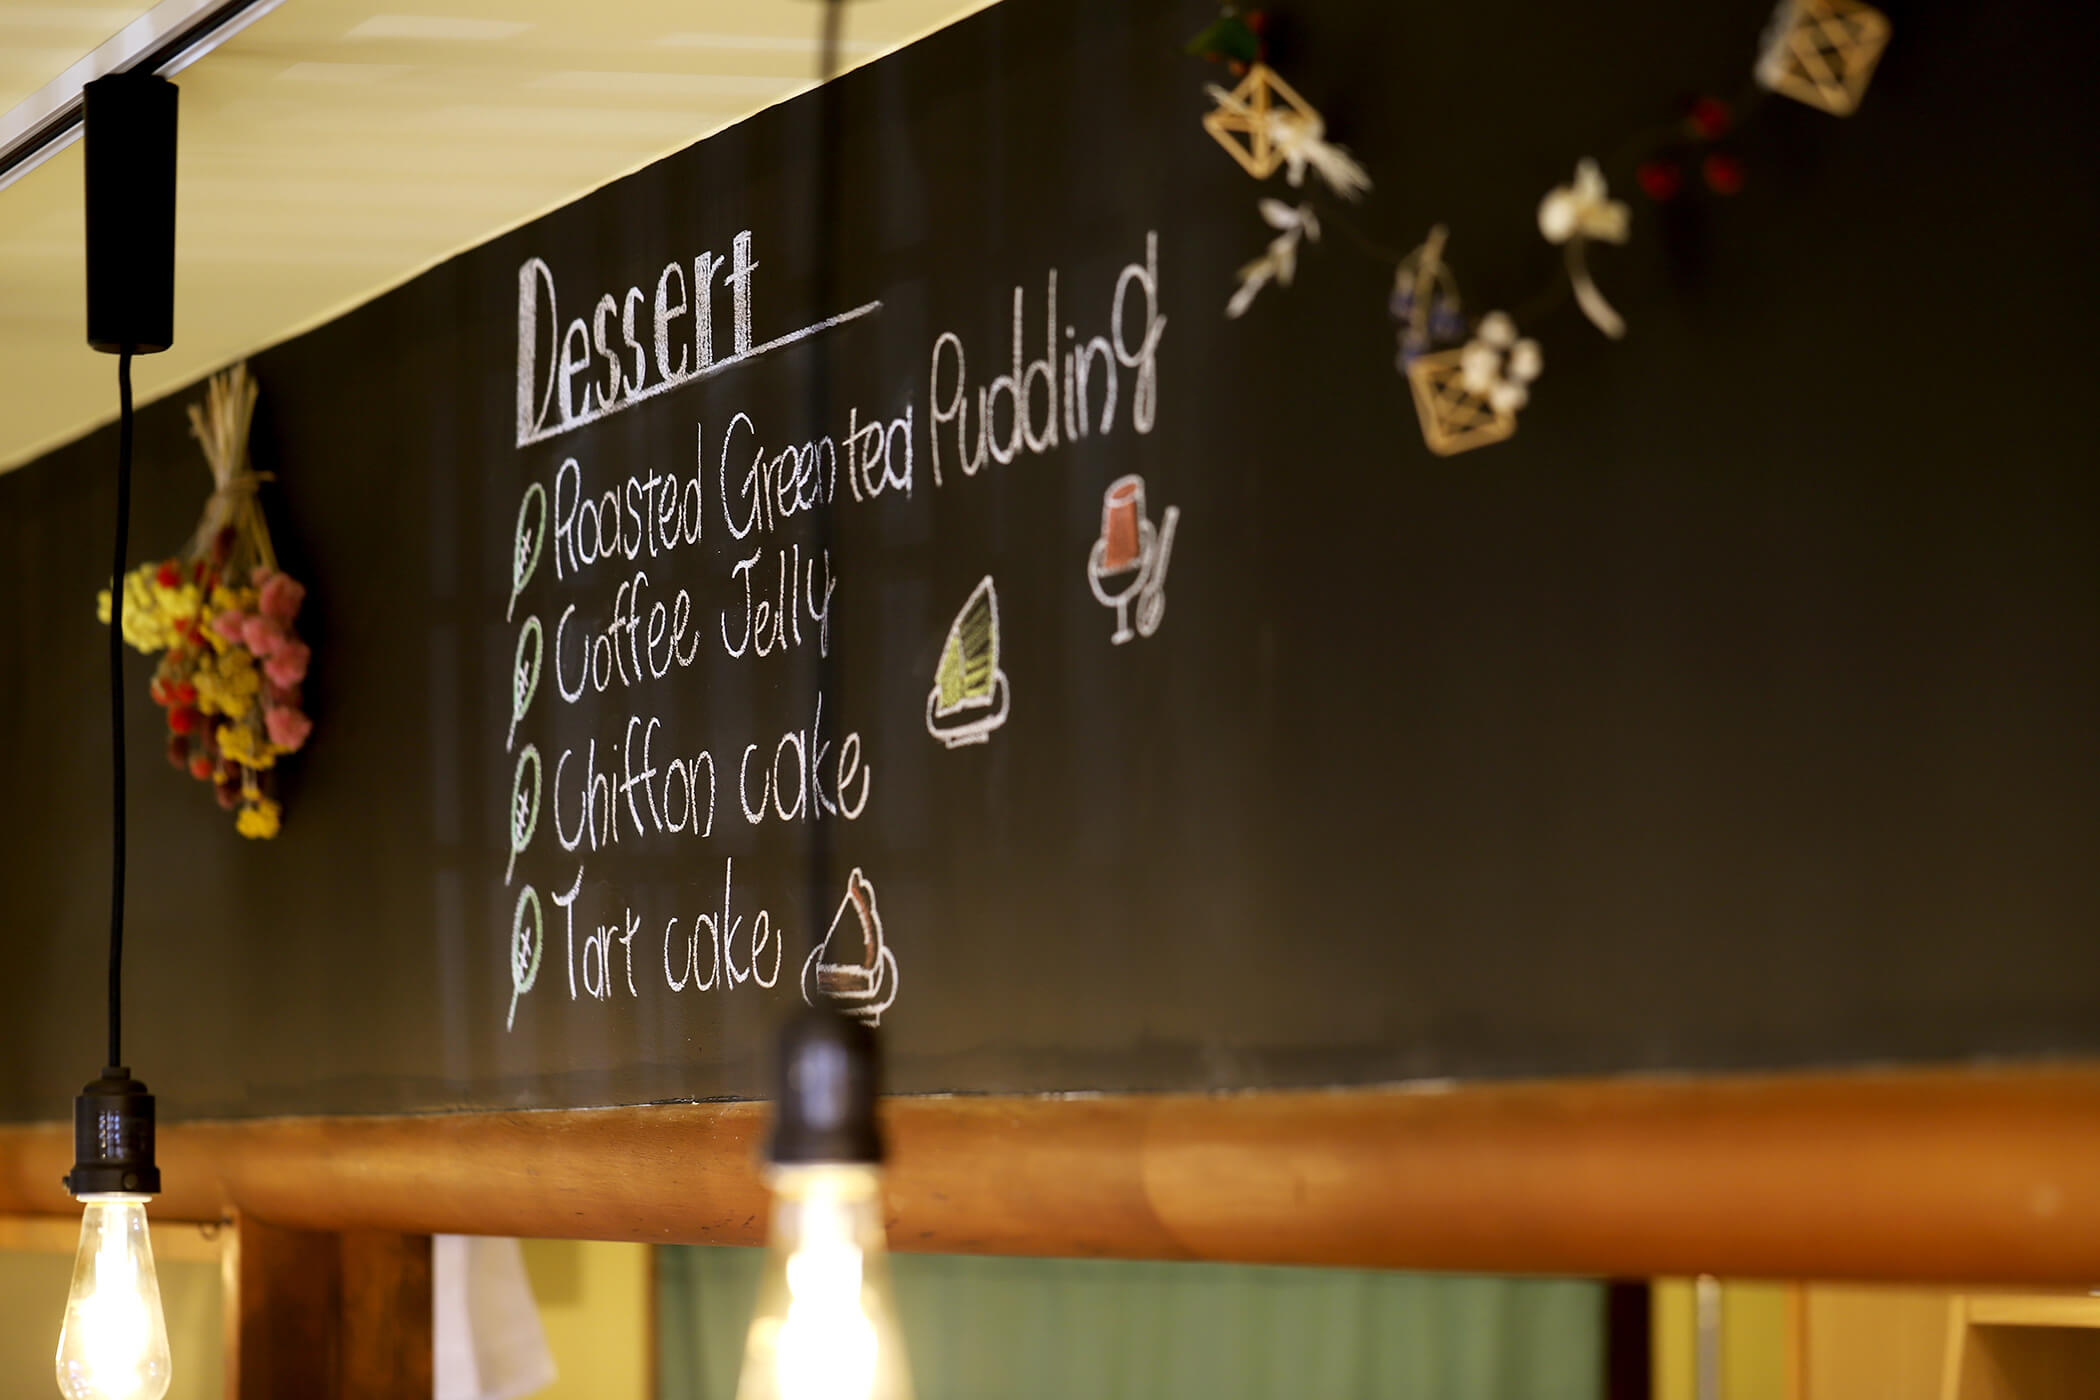 Dessert
Roasted Green tea Pudding
Coffee Jelly
Chiffon cake
Tart cake